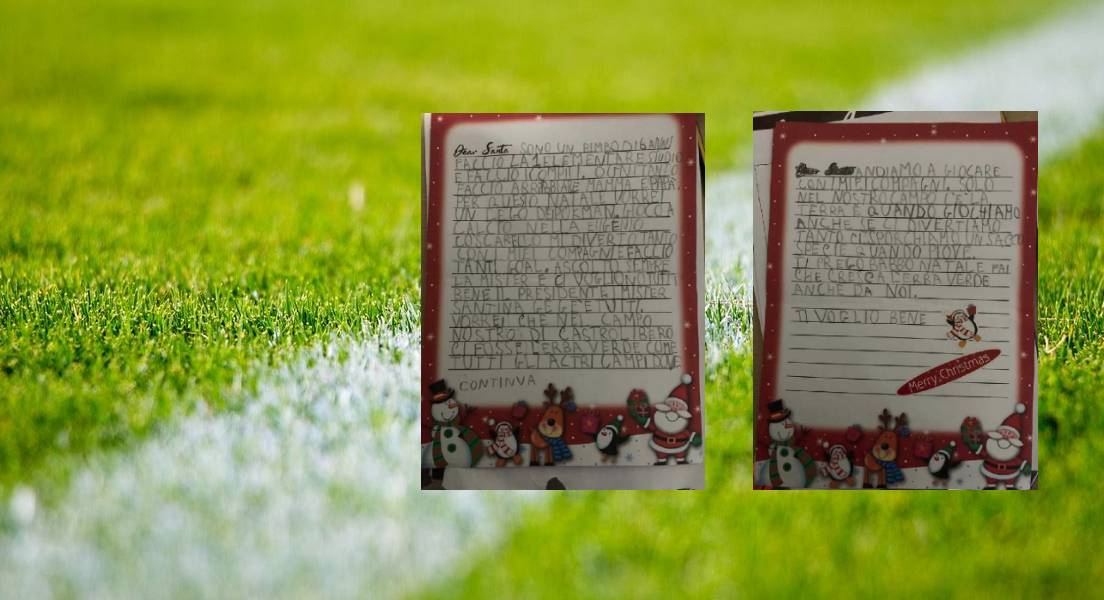 Dear Santa SONO UN BIMBO DI 6 ANNI
FACCIO LA 1 ELEMENTARE STUDIO
E FACCIO I COMPITI. QUALCHE
FACCIO ARRABBIARE MAMMA E PAPA.
PER QUESTO NATALE VORREI
UN LEGO DI POKEMAN. GIOCO A
CALCIO NELLA EUGENIO
COSCARELLO MI DIVERTO TANTO
CON I MIEI COMPAGNI E FACCIO
TANTI GOAL. ASCOLTO SEMPRE
LA MISTER E CI VOGLIONO TUTTI
BENE IL PRESIDENTE MISTER
SANTINA GEGE E TUTTI.
VORREI CHE NEL CAMPO
NOSTRO DI CASTROLIBERO
CI FOSSE L'ERBA VERDE COME
TUTTI GLI ACTRI CAMPI DOVE
CONTINVA
Dear Santa ANDIAMO A GIOCARE
CON I MIEI COMPAGNI. SOLO
NEL NOSTRO CAMPO C'E LA
TERRA E QUANDO GIOCHIAMO
ANCHE SE CI DIVERTIAMO
TANTO CI SPORCHIAMO UN SACCO
SPECIE QUANDO PIOVE.
TI PREGO BABBO NATALE FAI
CHE CRESCA L'ERBA VERDE
ANCHE DA NOI.
TI VOGLIO BENE
Merry Christmas